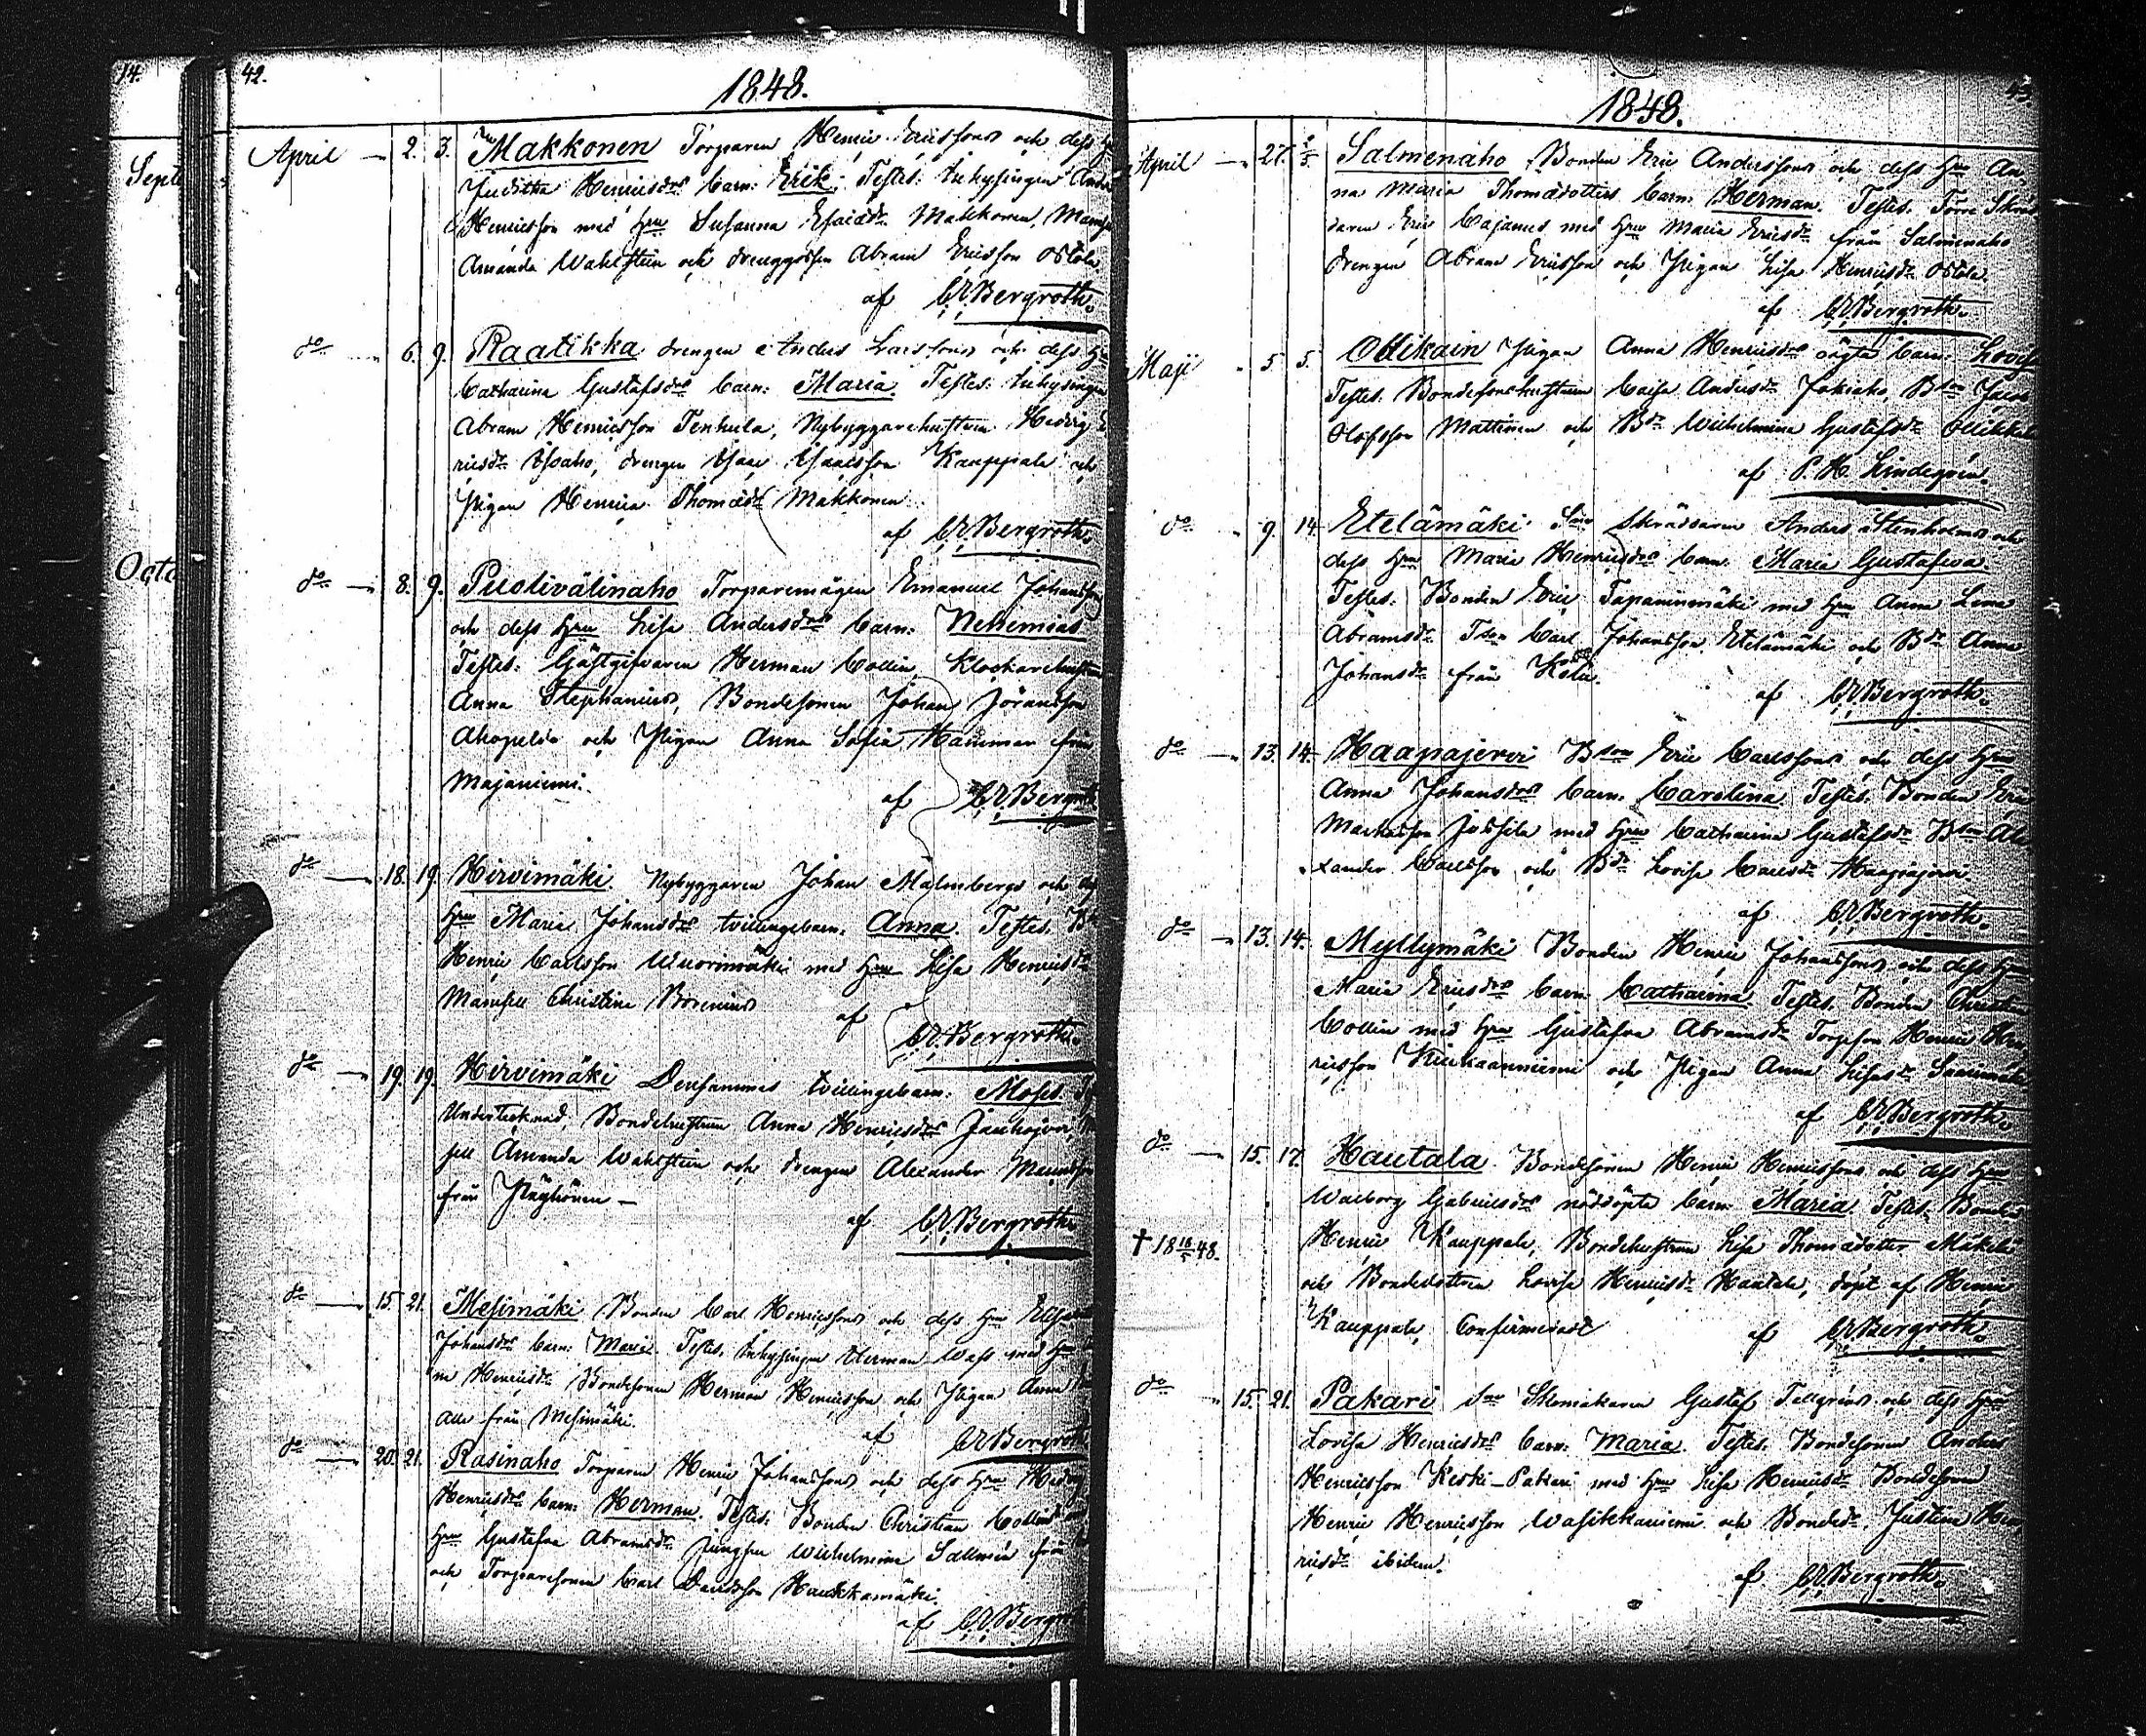 14.
Septe
Octo
42.
1848.
April 2. 3. Makkonen Torparen Henric Ericssons och dess
Juditha Henricsdrs barn: Erik. Testes: Inhysingen
Henricsson med Hru Susanna Esaiædr Makkonen,
Amanda Wahlsten och drenggossen Abram Ericsson Ostola.
af C.E. Bergroth.
do 6. 9. Raatikka drengen Anders Larssons och dess Hru
Catharina Gustafsdrs barn: Maria. Testes: Inhysingen
Abram Henricsson Tenhula, Nybyggarehustrun Hedvig E
ricsdr, drengen Isaac Isaacsson Kauppala och
Pigan Henrica Thomædr Makkonen
af C.E. Bergroth.
do 8. 9. Puolivälinaho Torparemågen Emanuel Johansson
och dess Hru Lisa Andersdrs barn: Nehemias
Testes: Gästgifvaren Herman Collin, Klockarehustrun
Anna Stephanius, Bondesonen Johan Jöransson
Ahopelto och Pigan Anna Sofia Hamman från
Majaniemi.
af C.E. Bergroth
do 18. 19. Hirvimäki Nybyggaren Johan Malmbergs och
Hru Maria Johansdrs tvillingebarn: Anna. Testes:
Henric Carlsson Wuorinmäki med Hru Lisa Henricsdr
Mamsell Christina Borenius
af C.E. Bergroth.
do 19. 19. Hirvimäki Densammes tvillingebarn: Moses.
Undertecknad, Bondehustrun Anna Henricsdr
sell Amanda Wahlsten och drengen Alexander
från
af C.E. Bergroth
do 15. 21. Mesimäki Bonden Carl Henricssons och dess Hru
Johansdrs barn: Maria. Testes: Inhysingen Herman Wass med Hru
Henricsdr Bondesonen Herman Henricsson och Pigan Anna
alla från Mesimäki.
af C.E. Bergroth
do 20. 21. Rasinaho Torparen Henric Johanssons och dess Hru Hedvig
Henricsdrs barn: Herman. Testes: Bonden Christian Collin
Hru Gustafva Abramsdr jungfru Wilhelmina Sallmén från
och Torparesonen Carl Davidsson Haukkamäki.
af C.E. Bergroth
43.
1848.
April 27. 1/5 Salmenaho Bonden Eric Anderssons och dess Hru An
na Maria Thomædotters barn: Herman. Testes: Torra Skräd
daren Eric Cajanus med Hru Maria Ericsdr från Salmenaho
drengen Abram Ericsson och Pigan Lisa Henricsdr Ostola.
af C.E. Bergroth.
Maji 5. 5. Ollikain Pigan Anna Henricsdrs oägta barn: Lovisa
Testes: Bondesonshustrun Caisa Andersdr Jokiaho, Bson Jacob
Olofsson Mattinen och Bdr Wilhelmina Gustafsdr Ollikkala
af P.H. Lindegrén.
do 9. 14. Etelämäki Skräddaren Anders Stenholms och
dess Hru Maria Henricsdrs barn: Maria Gustafva.
Testes: Bonden Eric Tapaninmäki med Hru Anna Lena
Abramsdr Tson Carl Johansson Etelämäki och Bdr Anna
Johansdr från
af C.E. Bergroth.
do 13. 14. Haapajervi Bson Eric Carlssons och dess Hru
Anna Johansdrs barn: Carolina. Testes: Bonden Eric
Markusson Jussila med Hru Catharina Gustafsdr Bson Al
exander Carlsson och Bdr Lovisa Carlsdr Haapajervi.
af C.E. Bergroth.
do 13. 14. Myllymäki Bonden Henric Johanssons och dess Hru
Maria Ericsdrs barn: Catharina. Testes: Bonden Christian
Collin med Hru Gustafva Abramsdr Torpson Henric Hen
ricsson Kiukaanniemi och Pigan Anna Lisa
af C.E. Bergroth.
do 15. 17. Hautala Bondesonen Henric Henricssons och dess Hru
Walborg Gabrielsdrs nöddöpta barn: Maria. Testes: Bonden
† 18 18/5 48. Henric Kauppala, Bondehustrun Lisa Thomædotter Mäkelä
och Bondedottren Lovisa Henricsdr Hautala, döpt af Henric
Kauppala, Confirmeradt af C.E. Bergroth.
do 15. 21. Pakari Skomakaren Gustaf Tellgréns och dess Hru
Lovisa Henricsdrs barn: Maria. Testes: Bondesonen Anders
Henricsson Keski-Pakari med Hru Lisa Henricsdr Bondesonen
Henric Henricsson Wasikkaniemi och Bondedr. Justina Hen
ricsdr ibidem.
af C.E. Bergroth.